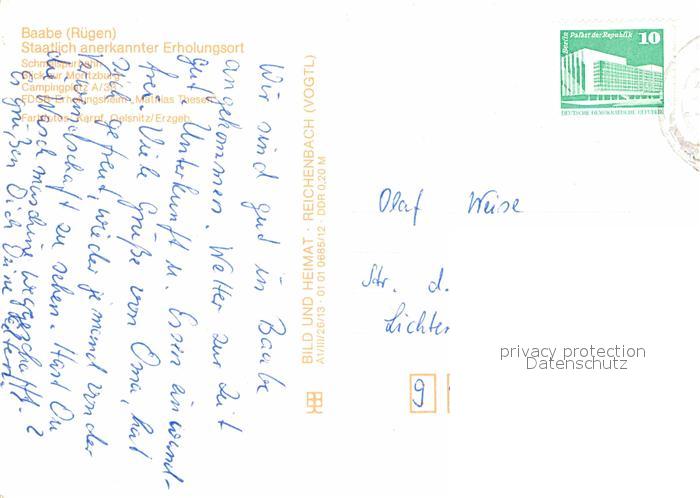 Baabe (Rügen)
Staatlich anerkannter Erholungsort
Schmalspurbahn
Blick zur Moritzburg
Campingplatz A/36
FDGB-Erholungsheim „Mathias Thesen"
Farbfotos: Kempf, Oelsnitz/Erzgeb.
Wir sind gut in Baabe
angekommen. Wetter zur Zeit
gut. Unterkunft u. Essen einwand-
frei. Viele Grüße von Oma, hat
sich gefreut, wieder jemand von der
Verwandtschaft zu sehen. Hast Du
die Waschmaschine weggeschafft?
Es grüßen Dich Deine Eltern.
BILD UND HEIMAT · REICHENBACH (VOGTL)
A1/III/26/13 · 01 01 0685/12 · DDR 0,20 M
Berlin Palast der Republik 10
DEUTSCHE DEMOKRATISCHE REPUBLIK
Olaf Weise
Str. d.
Lichter
9
privacy protection
Datenschutz